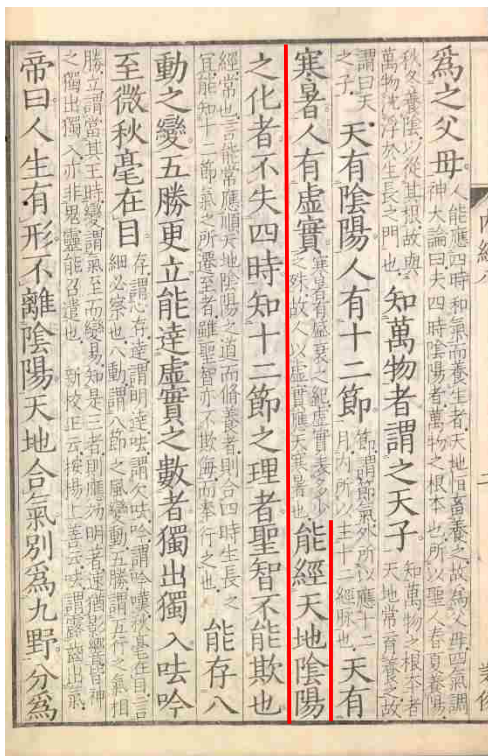 爲之父母人能應四時和氣而養生者天地恒畜養之故爲父母四氣調
神大論曰夫四時陰陽者萬物之根本也所以聖人春夏養陽
秋冬養陰以從其根故與
萬物沈浮於生長之門也知萬物者謂之天子知萬物之根本者
天地常育養之故
謂曰天
之子天有陰陽人有十二節節謂節氣外所以應十二
月内所以主十二經脉也天有
寒暑人有虛實寒暑有盛衰之紀虛實表多少
之殊故人以虛實應天寒暑也能經天地陰陽
之化者不失四時知十二節之理者聖智不能欺也
經常也言能常應順天地陰陽之道而脩養者則合四時生長之
宜能知十二節氣之所遷至者雖聖智亦不欺侮而奉行之也能存八
動之變五勝更立能達虛實之數者獨出獨入呿吟
至微秋毫在目存謂心存達謂明達呿謂欠呿吟謂吟嘆秋毫在目言
細必察也八動謂八節之風變動五勝謂五行之氣相
勝立謂當其王時變謂氣至而變易知是三者則應効明著速猶影響皆神
之獨出獨入亦非鬼靈能召遣也 新校正云按楊上善云呿謂露齒出氣
帝曰人生有形不離陰陽天地合氣別爲九野分爲